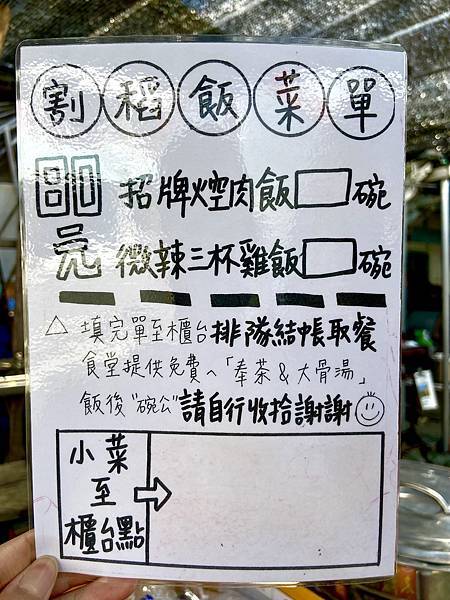 割稻飯菜單
80元
招牌焢肉飯 碗
微辣三杯雞飯 碗
△ 填完單至櫃台排隊結帳取餐
食堂提供免費ㄟ「奉茶&大骨湯」
飯後"碗公"請自行收拾謝謝
小菜
至
櫃台點